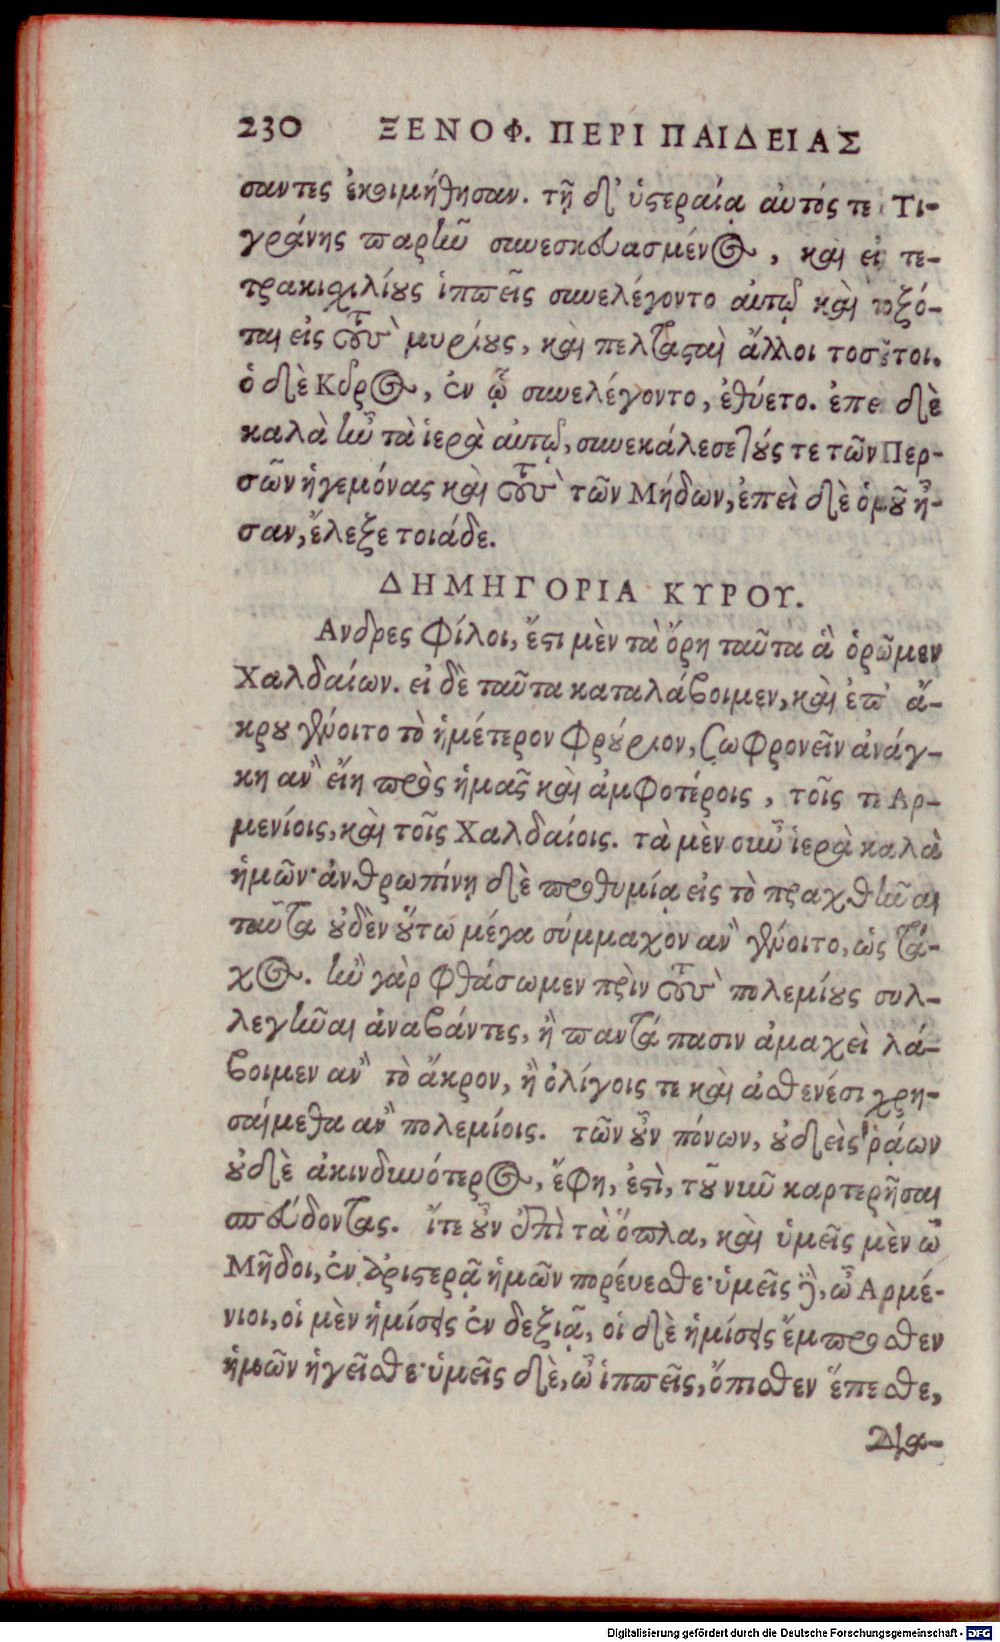 230 ΞΕΝΟΦ. ΠΕΡΙ ΠΑΙΔΕΙΑΣ
σαντες ἐκοιμήθησαν. τῇ δ' ὑστεραίᾳ αὐτός τε Τι-
γράνης παρῆν συνεσκευασμένος, καὶ εἰς τε-
τρακιχιλίους ἱππεῖς συνελέγοντο αὐτῷ καὶ τοξό-
ται εἰς τοὺς μυρίους, καὶ πελτασταὶ ἄλλοι τοσοῦτοι.
ὁ δὲ Κῦρος, ἐν ᾧ συνελέγοντο, ἐθύετο. ἐπεὶ δὲ
καλὰ ἦν τὰ ἱερὰ αὐτῷ, συνεκάλεσε τούς τε τῶν Περ-
σῶν ἡγεμόνας καὶ τοὺς τῶν Μήδων, ἐπεὶ δὲ ὁμοῦ ἦ-
σαν, ἔλεξε τοιάδε.
ΔΗΜΗΓΟΡΙΑ ΚΥΡΟΥ.
Ανδρες φίλοι, ἔστι μὲν τὰ ὄρη ταῦτα ἃ ὁρῶμεν
Χαλδαίων. εἰ δὲ ταῦτα καταλάβοιμεν, καὶ ἐπ' ἄ-
κρου γένοιτο τὸ ἡμέτερον φρούριον, σωφρονεῖν ἀνάγ-
κη ἂν εἴη πρὸς ἡμᾶς καὶ ἀμφοτέροις, τοῖς τε Αρ-
μενίοις, καὶ τοῖς Χαλδαίοις. τὰ μὲν οὖν ἱερὰ καλὰ
ἡμῶν· ἀνθρωπίνῃ δὲ προθυμίᾳ εἰς τὸ πραχθῆναι
ταῦτα οὐδὲν οὕτω μέγα σύμμαχον ἂν γένοιτο, ὡς τά-
χος. ἢν γὰρ φθάσωμεν πρὶν τοὺς πολεμίους συλ-
λεγῆναι ἀναβάντες, ἢ παντάπασιν ἀμαχεὶ λά-
βοιμεν ἂν τὸ ἄκρον, ἢ ὀλίγοις τε καὶ ἀσθενέσι χρη-
σαίμεθα ἂν πολεμίοις. τῶν οὖν πόνων, οὐδεὶς ῥᾴων
οὐδὲ ἀκινδυνότερος, ἔφη, ἐστὶ, τοῦ νῦν καρτερῆσαι
σπεύδοντας. ἴτε οὖν ἐπὶ τὰ ὅπλα, καὶ ὑμεῖς μὲν ὦ
Μῆδοι, ἐν ἀριστερᾷ ἡμῶν πορεύεσθε· ὑμεῖς δὲ, ὦ Αρμέ-
νιοι, οἱ μὲν ἡμίσεις ἐν δεξιᾷ, οἱ δὲ ἡμίσεις ἔμπροσθεν
ἡμῶν ἡγεῖσθε· ὑμεῖς δὲ, ὦ ἱππεῖς, ὄπισθεν ἕπεσθε,
δια-
Digitalisierung gefördert durch die Deutsche Forschungsgemeinschaft - DFG